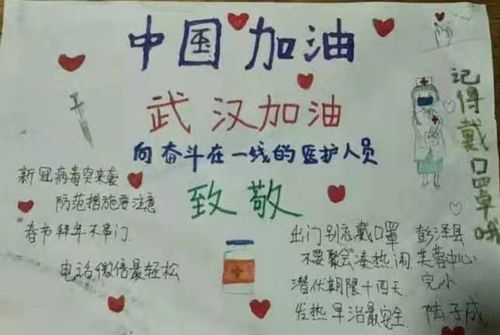 中国加油
武汉加油
向奋斗在一线的医护人员
致敬
记得戴口罩哦
新冠病毒突来袭
防范措施要注意
春节拜年不串门
电话微信最轻松
出门别忘戴口罩
不要聚会凑热闹
潜伏期限十四天
发热早治最安全
彭泽县
芙蓉中心
完小
陆子成